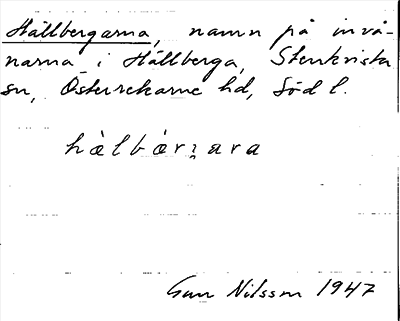 Hällbergarna, namn på invå-
narna i Hällberga, Stenkvista
sn, Österrekarne hd, Södl.
hàlbárꭍara
Gun Nilsson 1947